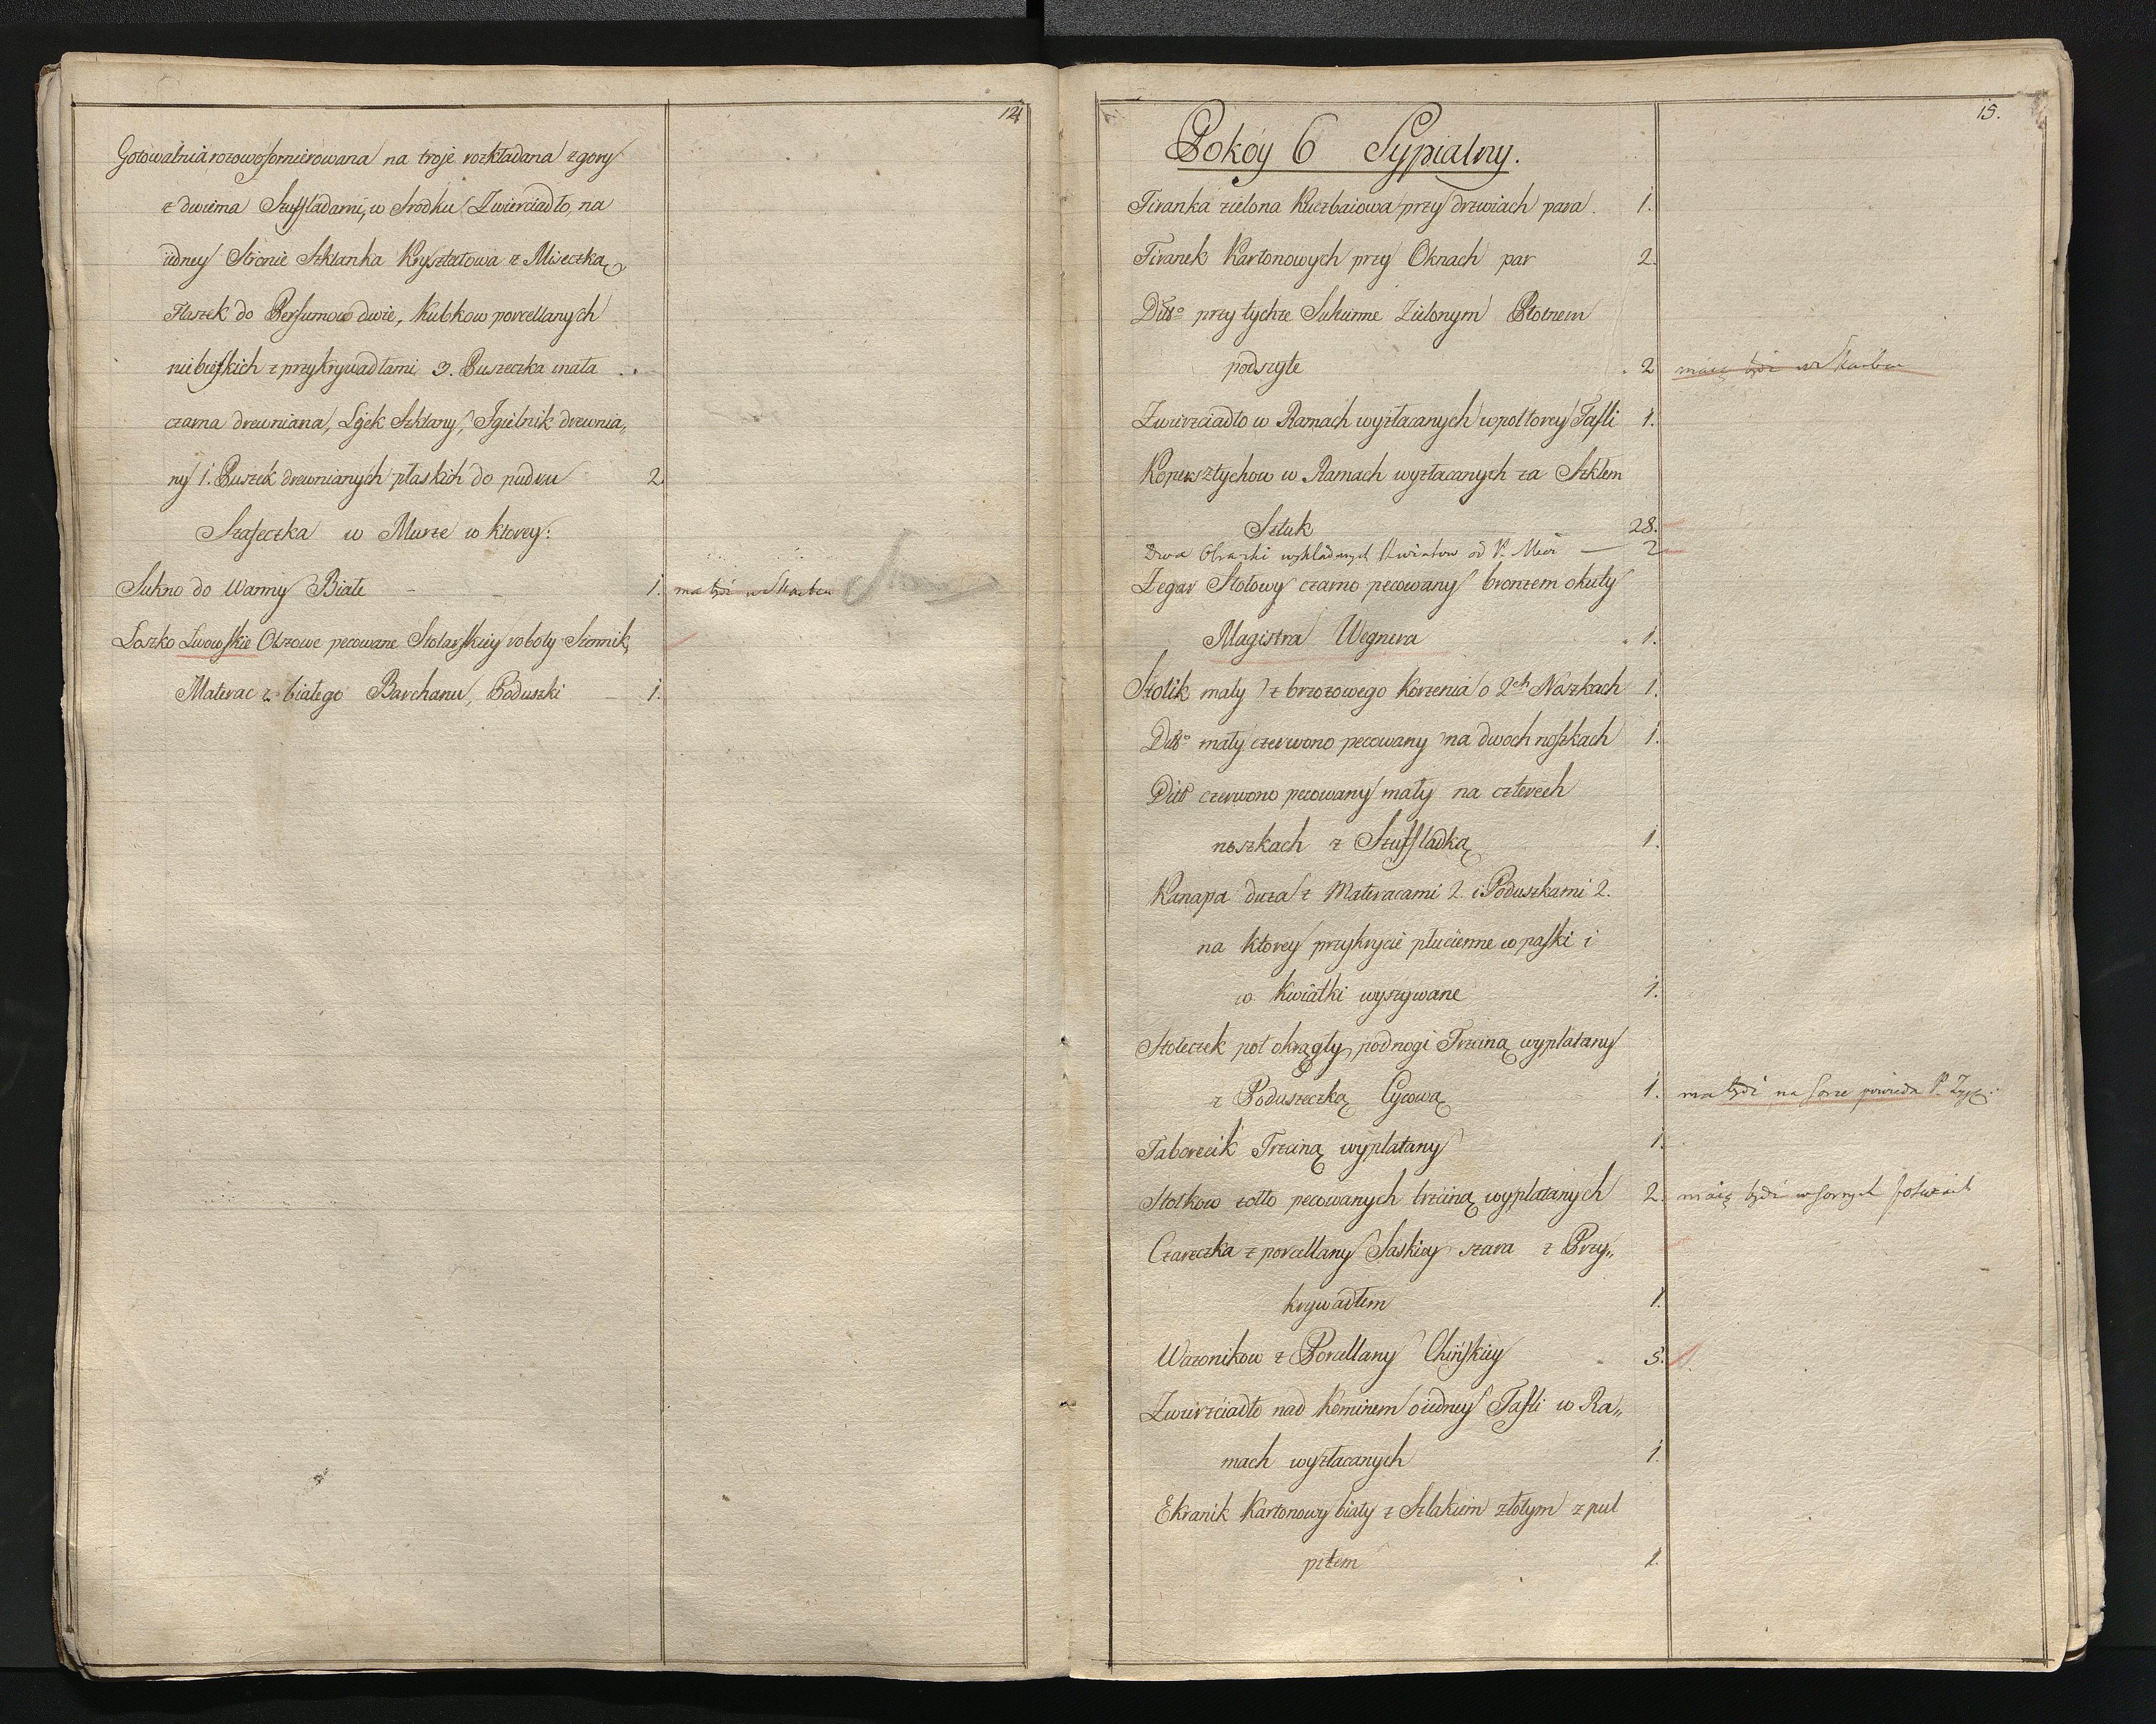 14
Gotowalnia rozowo fornierowana na troje rozkładana z gory
z dwiema Szuffladami, w Srodku Zwierciadło, na
iedney Stronie Szklanka Krysztalowa z Miseczką,
Flaszek do Perfumow dwie, Kubkow porcellanych
niebieskich z przykrywadłami 3. Puszeczka mała
czarna drewniana, Lijek Szklany, Jgielnik drewnia„
ny 1. Puszek drewnianych płaskich do pudru 2
Szafeczka w Murze w ktorey:
Sukno do Wanny Białe - - 1. ma bydź w Skarbcu
Loszko Lwowskie Olszowe pecowane Stolarskiey roboty Siennik,
Materac z białego Barchanu, Poduszki - 1.
15.
Pokóy 6 Sypialny.
Firanka zielona Kuczbaiowa przy drzwiach para. 1.
Firanek Kartonowych przy Oknach par 2.
Ditto przy tychże Sukienne Zielonym Płotnem
podszyte . 2 maią bydź w Skarbcu
Zwierzciadło w Ramach wyzłacanych w połtorey Tafli 1.
Kopersztychow w Ramach wyzłacanych za Szkłem
Sztuk 28.
Dwa Obrazki wykładanych Kwiatow od P. — 2
Zegar Stołowy czarno pecowany bronzem okuty
Magistra Wegnera . 1.
Stolik mały z brzozowego Korzenia o 2ch Noszkach 1.
Ditto mały czerwono pecowany na dwoch noszkach 1.
Ditto czerwono pecowany mały na czterech
noszkach z Szuffladką 1.
Kanapa duza z Materacami 2. i Poduszkami 2.
na ktorey przykrycie płucienne w paski i
w Kwiatki wyszywane 1.
Stołeczek poł okrągły pod nogi Trzciną wyplatany
z Poduszeczką Cycową 1. ma bydź na powiada P.
Taborecik Trzciną wyplatany 1.
Stołkow żółto pecowanych trzciną wyplatanych 2. maią bydź w
Czareczka z porcellany Saskiey szara z Przy„
krywadłem 1.
Wazonikow z Porcellany Chińskiey 5.
Zwierzciadło nad Kominem o iedney Tafli w Ra„
mach wyzłacanych 1.
Ekranik Kartonowy biały z Szlakiem złotym z pul
pitem 1.